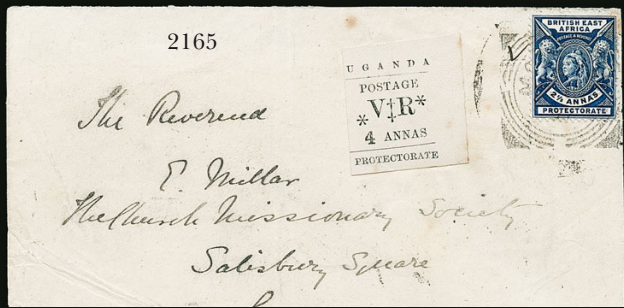 2165
UGANDA
POSTAGE
*V‡R*
4 ANNAS
PROTECTORATE
BRITISH EAST
AFRICA
POSTAGE & REVENUE
2½ ANNAS
PROTECTORATE
The Reverend
E. Millar
The Church Missionary Society
Salisbury Square